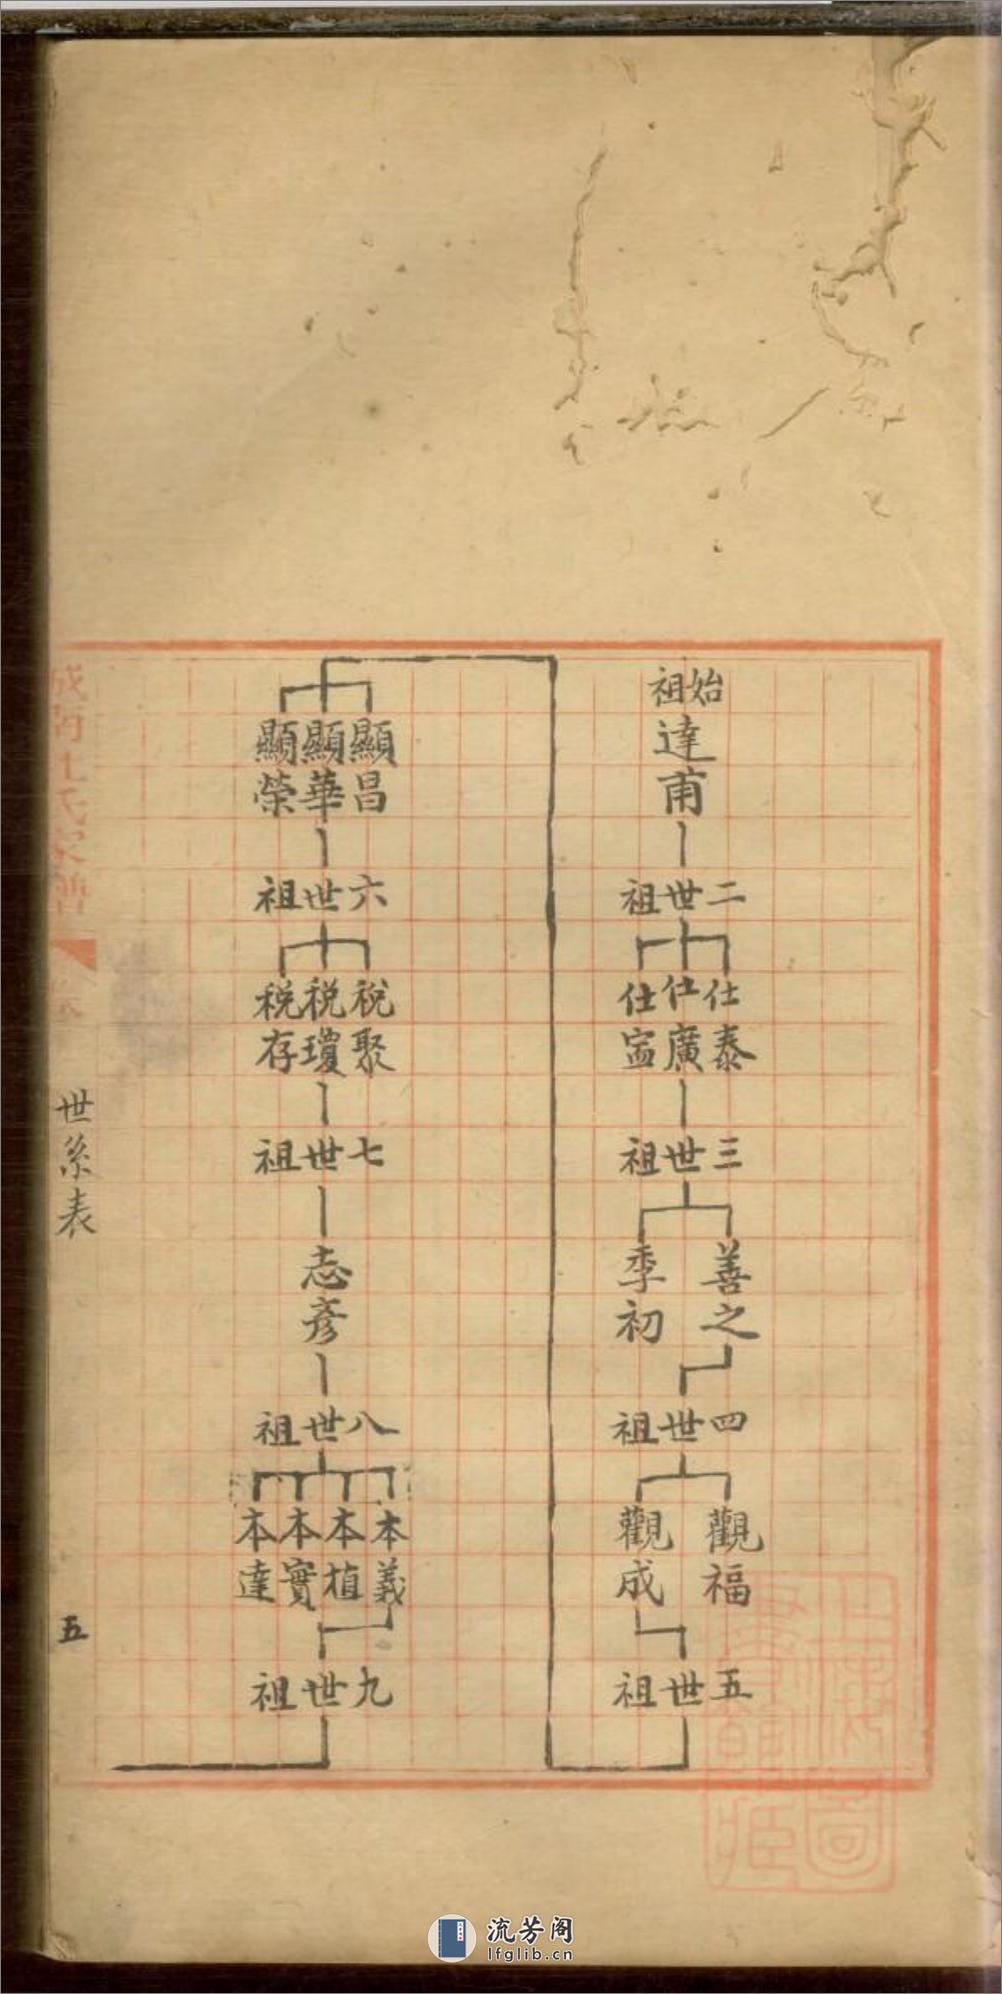 始祖
達甫
二世祖
仕泰
仕廣
仕寍
三世祖
善之
季初
四世祖
觀福
觀成
五世祖
顯昌
顯華
顯榮
六世祖
稅聚
稅瓊
稅存
七世祖
志彥
八世祖
本義
本植
本實
本達
九世祖
世系表
五
流芳阁
lfglib.cn